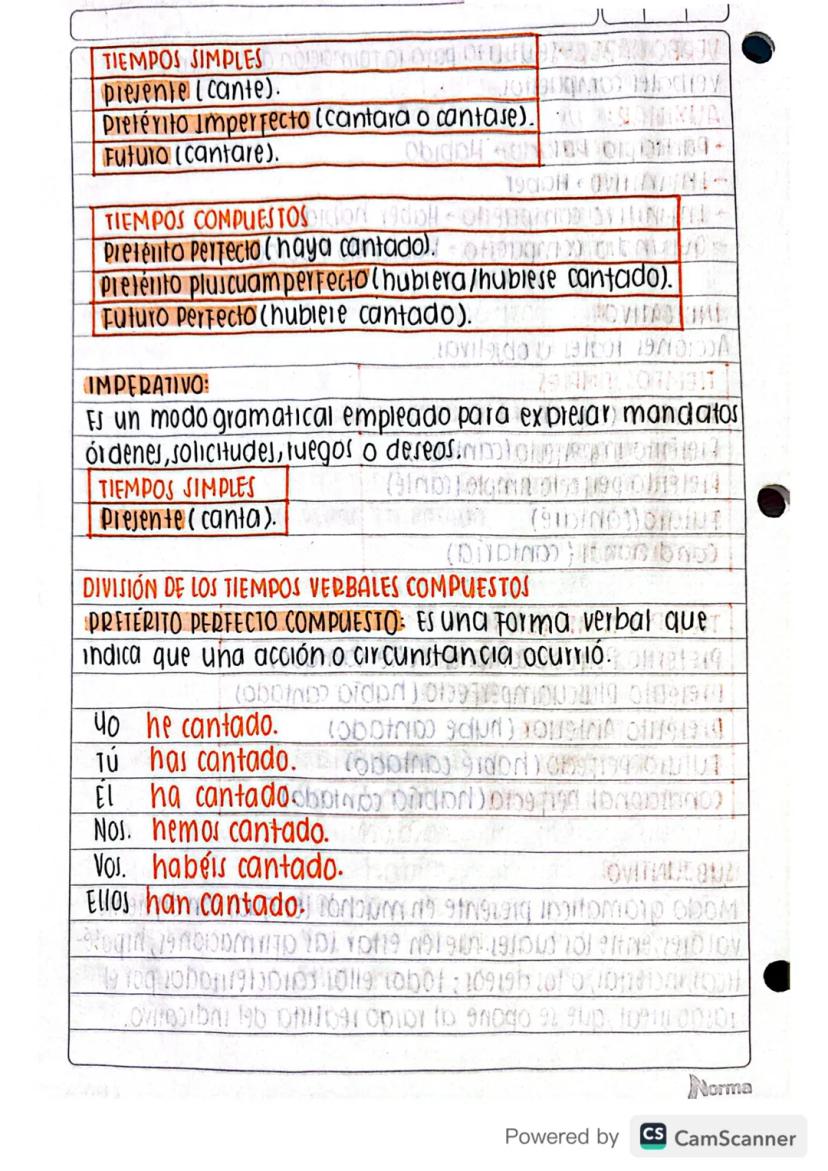 TIEMPOS SIMPLES
Presente (cante).
Pretérito Imperfecto (cantara o cantase).
Futuro (cantare).
TIEMPOS COMPUESTOS
Pretérito Perfecto (haya cantado).
Pretérito pluscuamperfecto (hubiera/hubiese cantado).
Futuro Perfecto (hubiere cantado).
IMPERATIVO:
Es un modo gramatical empleado para expresar mandatos
órdenes, solicitudes, ruegos o deseos.
TIEMPOS SIMPLES
Presente (canta).
DIVISIÓN DE LOS TIEMPOS VERBALES COMPUESTOS
PRETÉRITO PERFECTO COMPUESTO: Es una forma verbal que
indica que una acción o circunstancia ocurrió.
Yo he cantado.
Tú has cantado.
Él ha cantado.
Nos. hemos cantado.
Vos. habéis cantado.
Ellos han cantado.
Norma
Powered by CS CamScanner